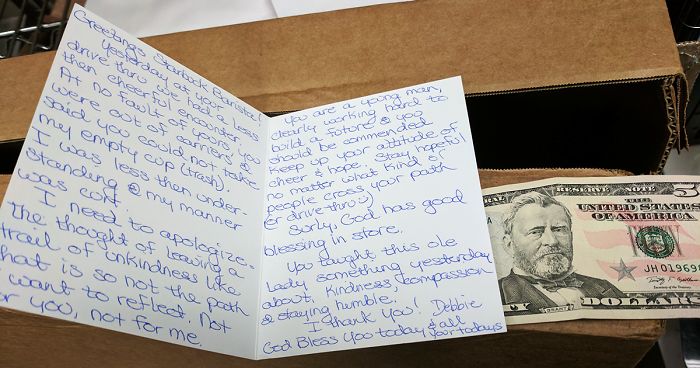 Greetings Starbuck Barista!
Yesterday at your
drive thru we had a less
then cheerful encounter.
At no fault of yours, you
were out of carriers &
said you could not take
my empty cup (trash).
I was less then under-
standing & my manner
was curt.
I need to apologize.
The thought of leaving a
trail of unkindness like
that is so not the path
I want to reflect. Not
for you, not for me.
You are a young man,
clearly working hard to
build a future & you
should be commended.
Keep up your attitude of
cheer & hope. Stay hopeful
no matter what kind of
people cross your path
(or drive thru :)
Surly, God has good
blessing in store.
You taught this ole
Lady something yesterday
about, kindness compassion
& staying humble.
I thank you! Debbie
God Bless you today & all
your todays
RESERVE NOTE
UNITED STATES
OF AMERICA
JH01969
DOLLARS
GRANT
5